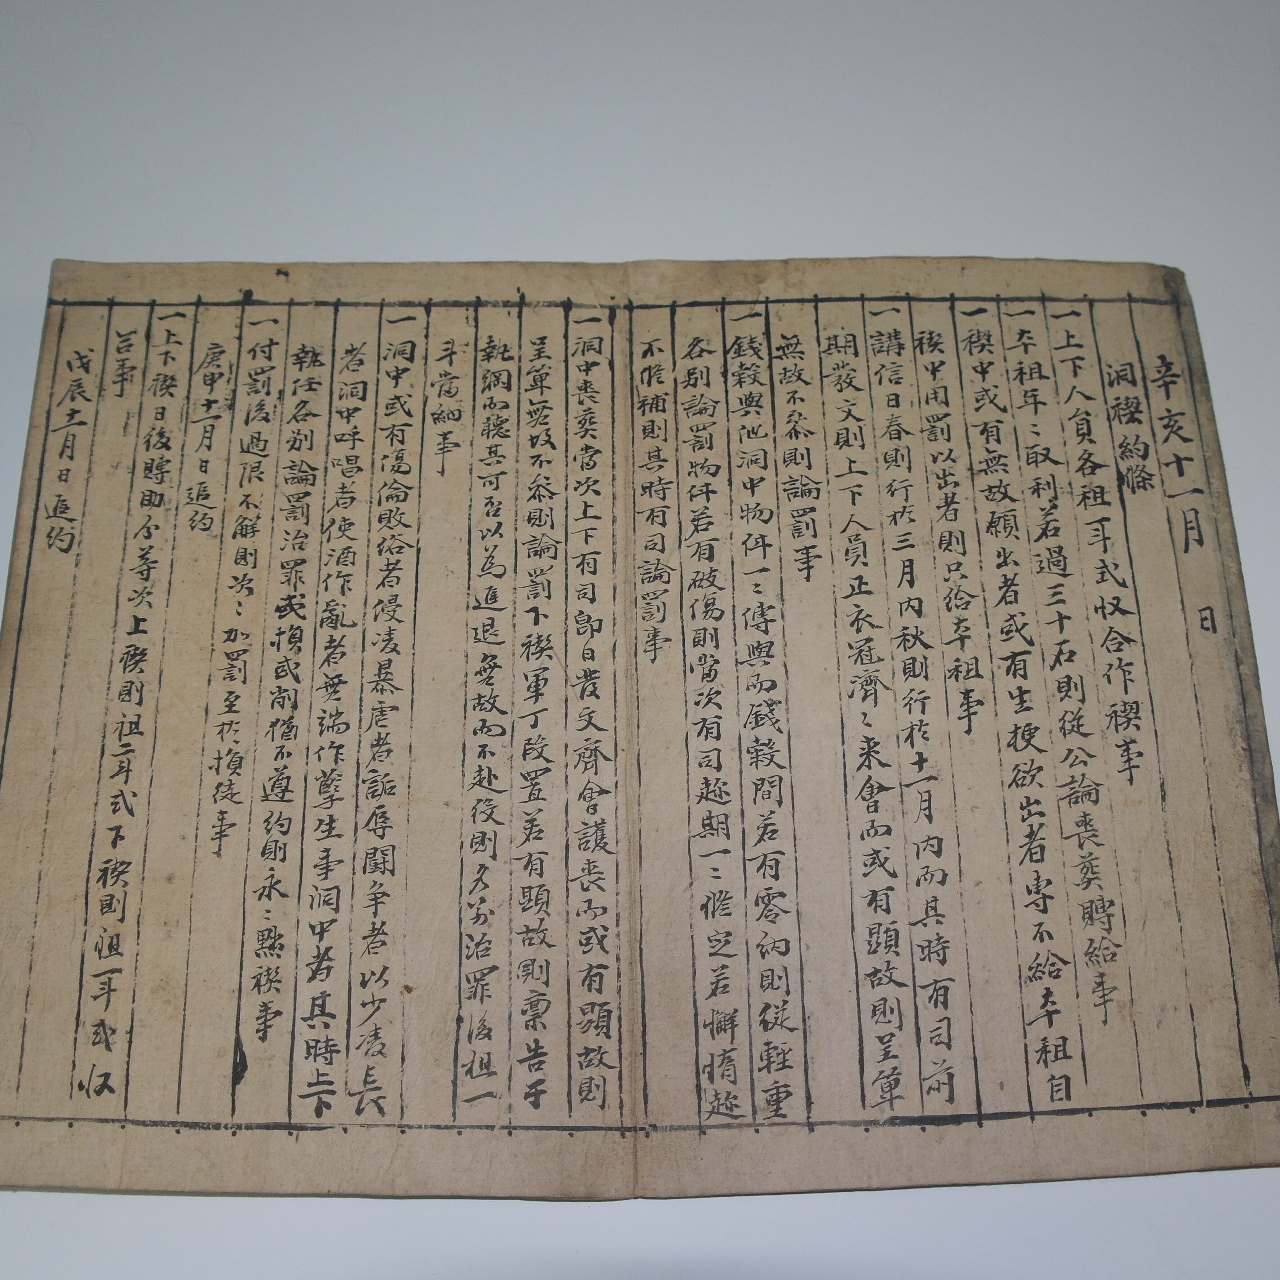 辛亥十一月 日
洞稧約條
一上下人員各租一斗式収合作稧事
一本租年〻取利若過三十石則從公論喪葬賻給事
一稧中或有無故願出者或有生梗欲出者専不給本租自
稧中用罰以出者則只給本租事
一講信日春則行於三月內秋則行於十一月內而其時有司前
期發文則上下人員正衣冠濟〻来會而或有顕故則呈單
無故不叅則論罰事
一錢穀與他洞中物件一〻傳與而錢穀間若有零納則從輕重
各別論罰物件若有破傷則當次有司趂期一〻修定若懈惰趂
不修補則其時有司論罰事
一洞中喪葬當次上下有司卽日發文齊會護喪而或有顕故則
呈單無故不叅則論罰下稧軍丁段置若有顕故則稟告于
執綱而聽其可否以為進退無故而不赴役則各別治罪後租一
斗當納事
一洞中或有傷倫敗俗者侵凌暴虐者詬辱鬪争者以少凌長
者洞中呼唱者使酒作亂者無端作孼生事洞中者其時上下
執任各別論罰治罪或損或削猶不遵約則永〻黜稧事
一付罰後過限不解則次〻加罰至於損徒事
庚申十一月日追約
一上下稧日後賻助分等次上稧則租二斗式下稧則租一斗式収
合事
戊辰十一月日追約